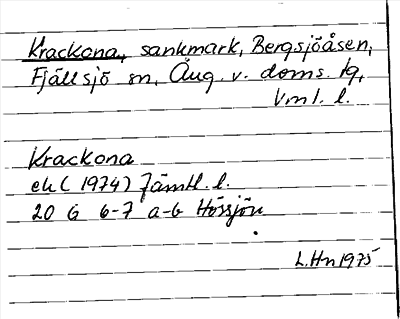 Krackona, sankmark, Bergsjöåsen,
Fjällsjö sn, Ång. v. doms. tg,
Vnrl. l.
Krackona
ek (1974) Jämtl. l.
20 G 6-7 a-b Hössjön
L.Hn 1975